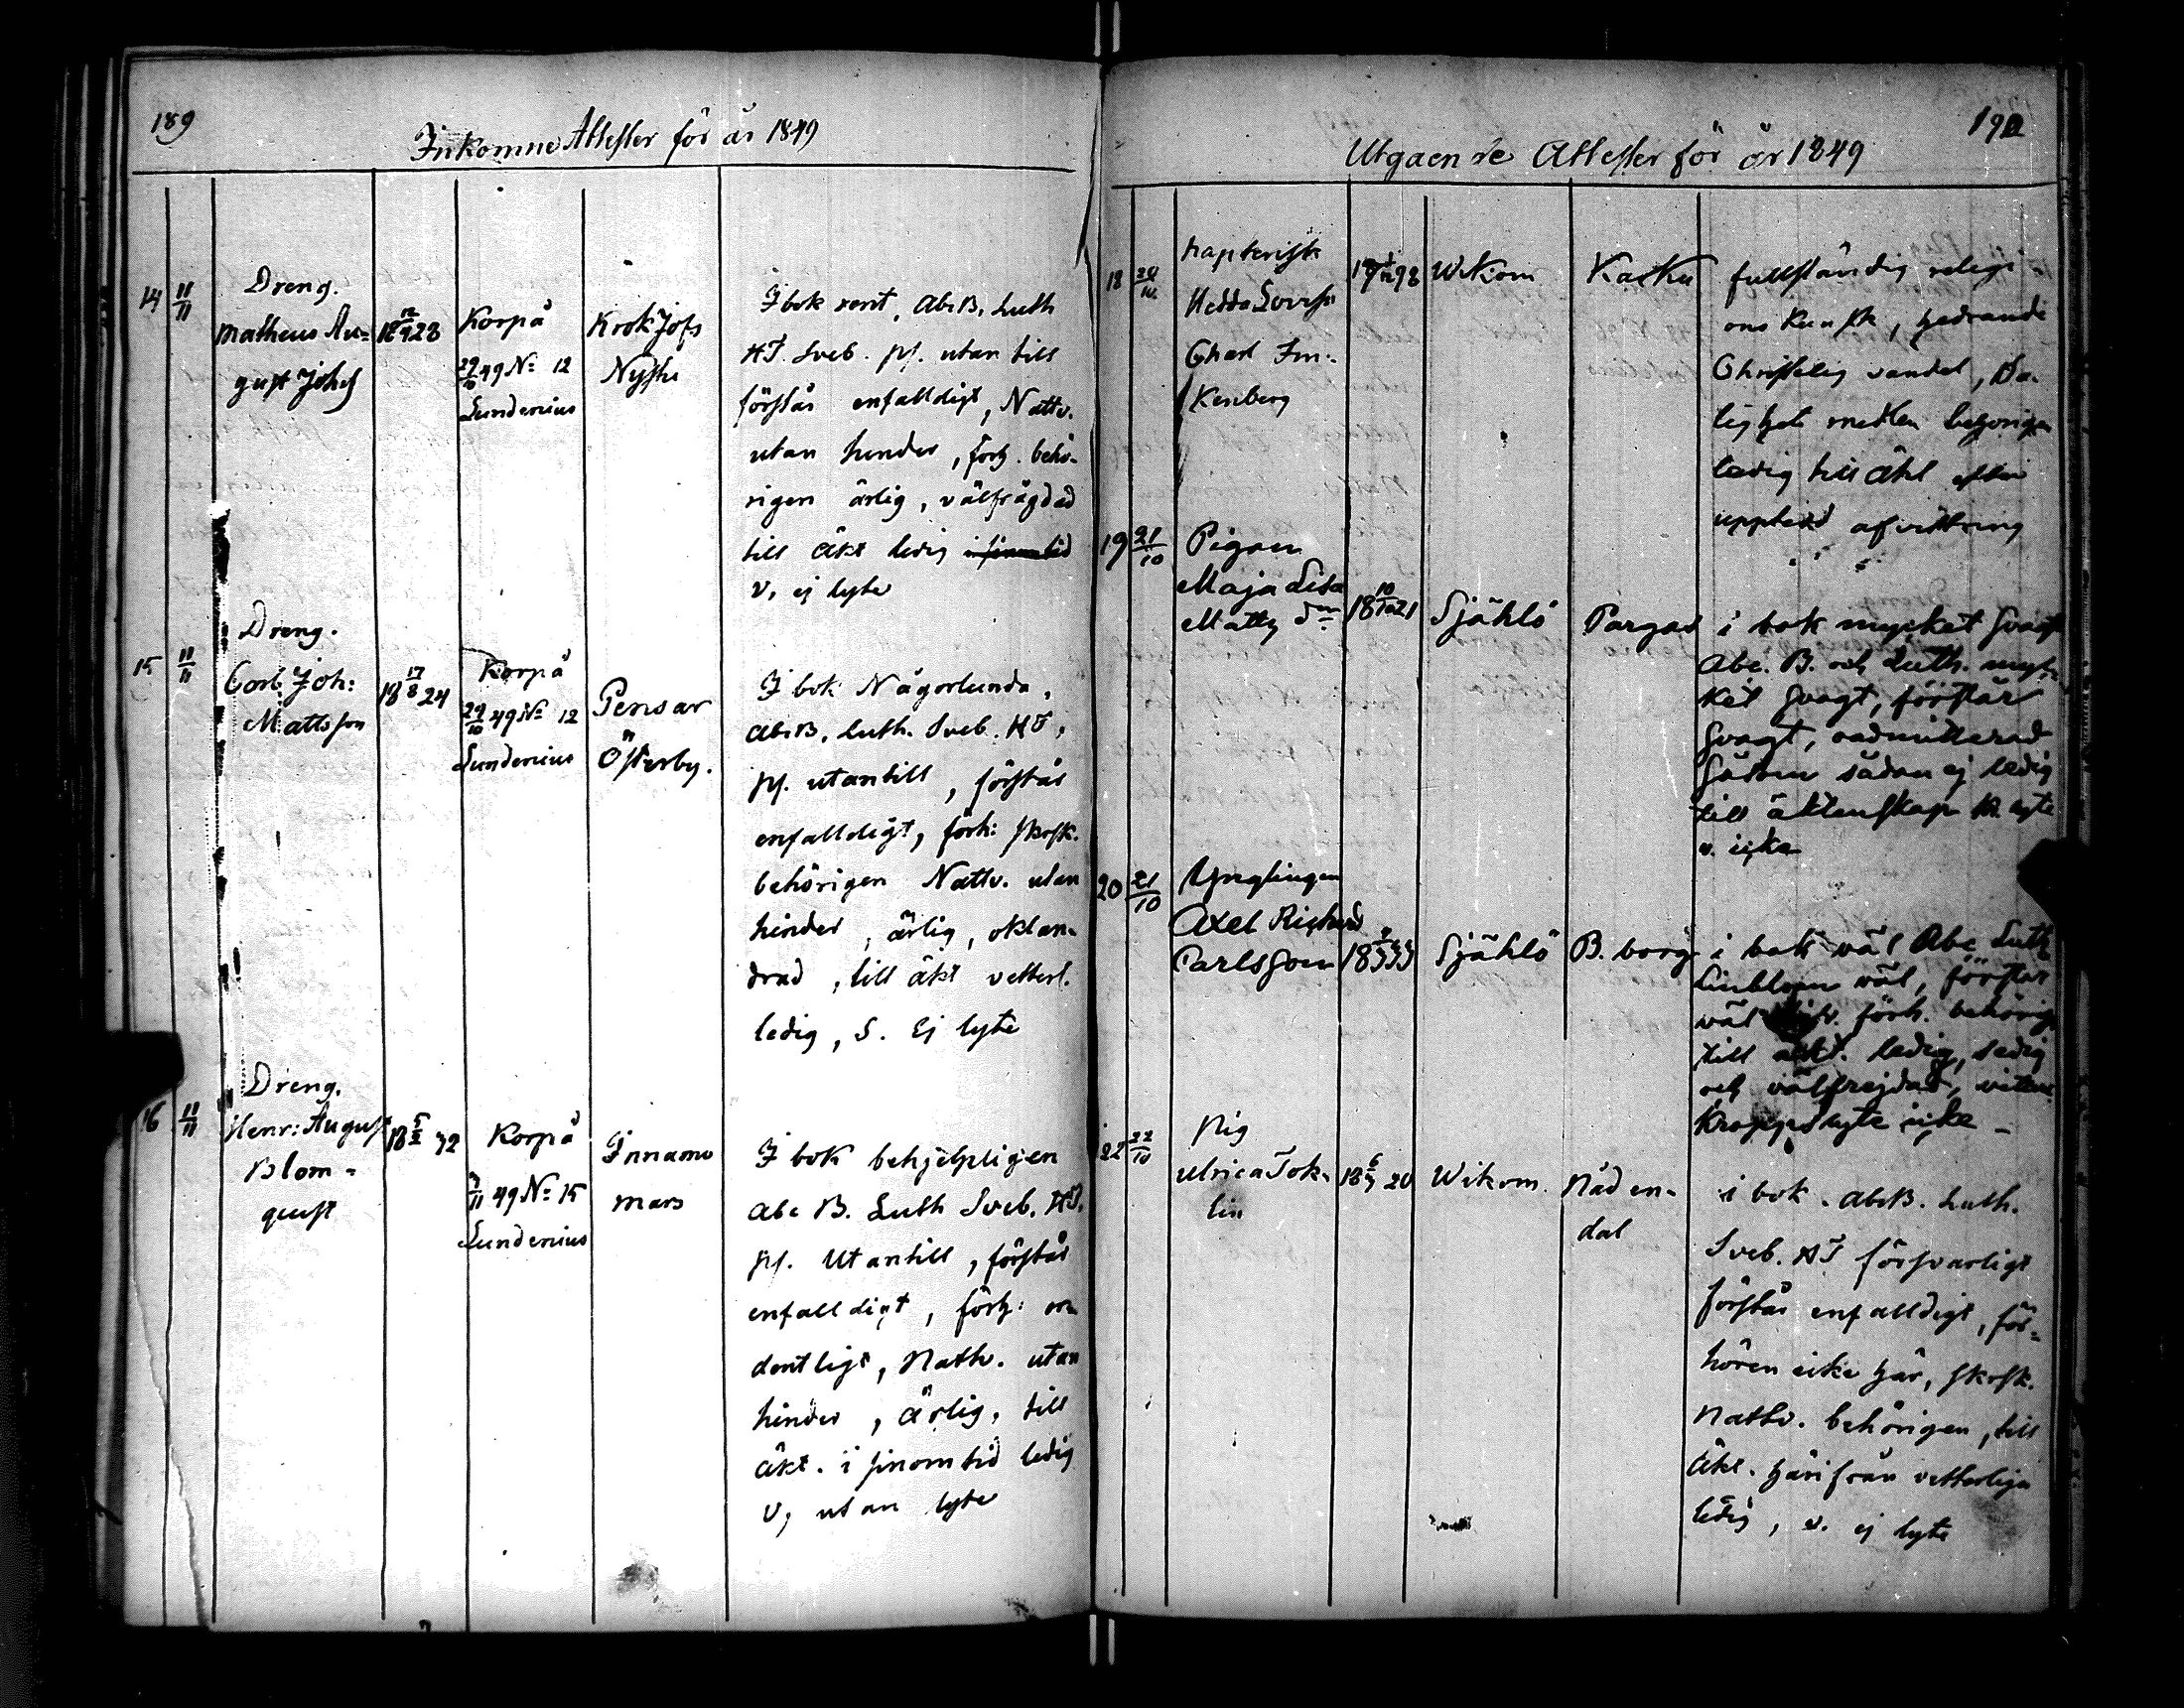 189
Inkomne Attester för år 1849
14 11/11
Dreng.
Matheus Au-
gust Johs
18 12/9 28
Korpå
29/10 49 No 12
Lundenius
Krok Jofs
Nystu
I bok rent, Abc B. Luth
HT. Sveb. ps. utan till
förstår enfalldigt, Nattv.
utan hinder, förh. behö-
rigen ärlig, välfrägdad
till äkt ledig i sinom tid
v. ej lyte
15 11/11
Dreng.
Carl Joh:
Mattsson
18 17/8 24
Korpå
29/10 49 No 12
Lundenius
Pensar
Österby.
I bok Någorlunda,
Abc B, Luth. Sveb. HT,
ps. utantill, förstår
enfalldigt, förh: skrsk.
behörigen Nattv. utan
hinder, ärlig, oklan-
drad, till äkt vetterl.
ledig, S. Ej lyte
16 11/11
Dreng.
Henr: August
Blom-
quist
18 5/2 32
Korpå
7/11 49 No 15
Lundenius
Innamo
mars
I bok behjelpligen
Abc B. Luth Sveb. HT.
ps. Utantill, förstår
enfalldigt, förh: or-
dentligt, Nattv. utan
hinder, ärlig, till
äkt. i sinom tid ledig
V, utan lyte
190
Utgaende Attester för år 1849
18 20/10
Hedda
Charl
Kenberg
Wikom
Kasku
fullständig religi-
ons kunsk,
Christelig vandel, Da-
medlen behörigen
ledig till äkt efter
19 21/10
Pigan
Maja Lisa
Matts dr
18 10/10 21
Själilö
Pargas
i bok mycket svagt
Abc. B. och Luth. myc-
ket svagt, förstår
svagt, oadmitterad
såsom sådan ej ledig
till äktenskap k. lyte
v. icke
20 21/10
Ynglingen
Axel Richard
Carlsson
Själilö
B. borg
i bok wäl Abc Luth
wäl, förstår
wäl förh. behörig
till äkt. ledig, sedig
och välfrejdad, vittas
kroppslyte icke -
22 22/10
Pig
Ulrica Tok-
lin
18 6/7 20
Wikom
Nåden-
dal
i bok. Abc B. Luth.
Sveb. HT försvarligt
förstår enfalldigt, för-
hören icke här, skrsk.
Nattv. behörigen, till
Äkt. härifrån vetterliga
ledig, v. ej lyte